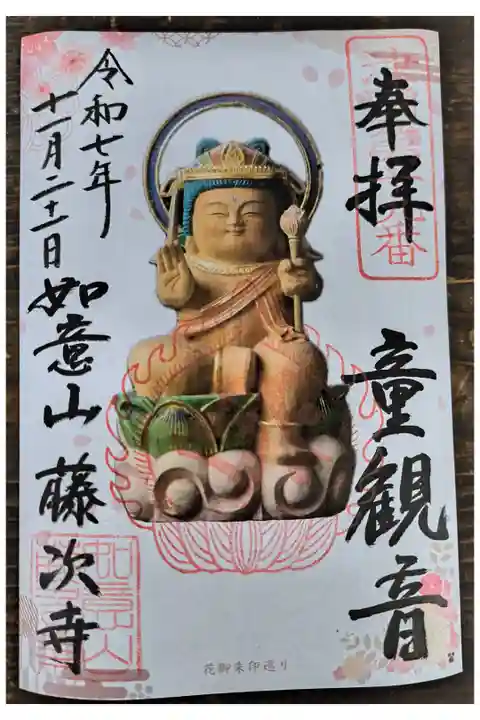 奉拝
童観音
令和七年
十一月二十二日
如意山 藤次寺
花御朱印巡り